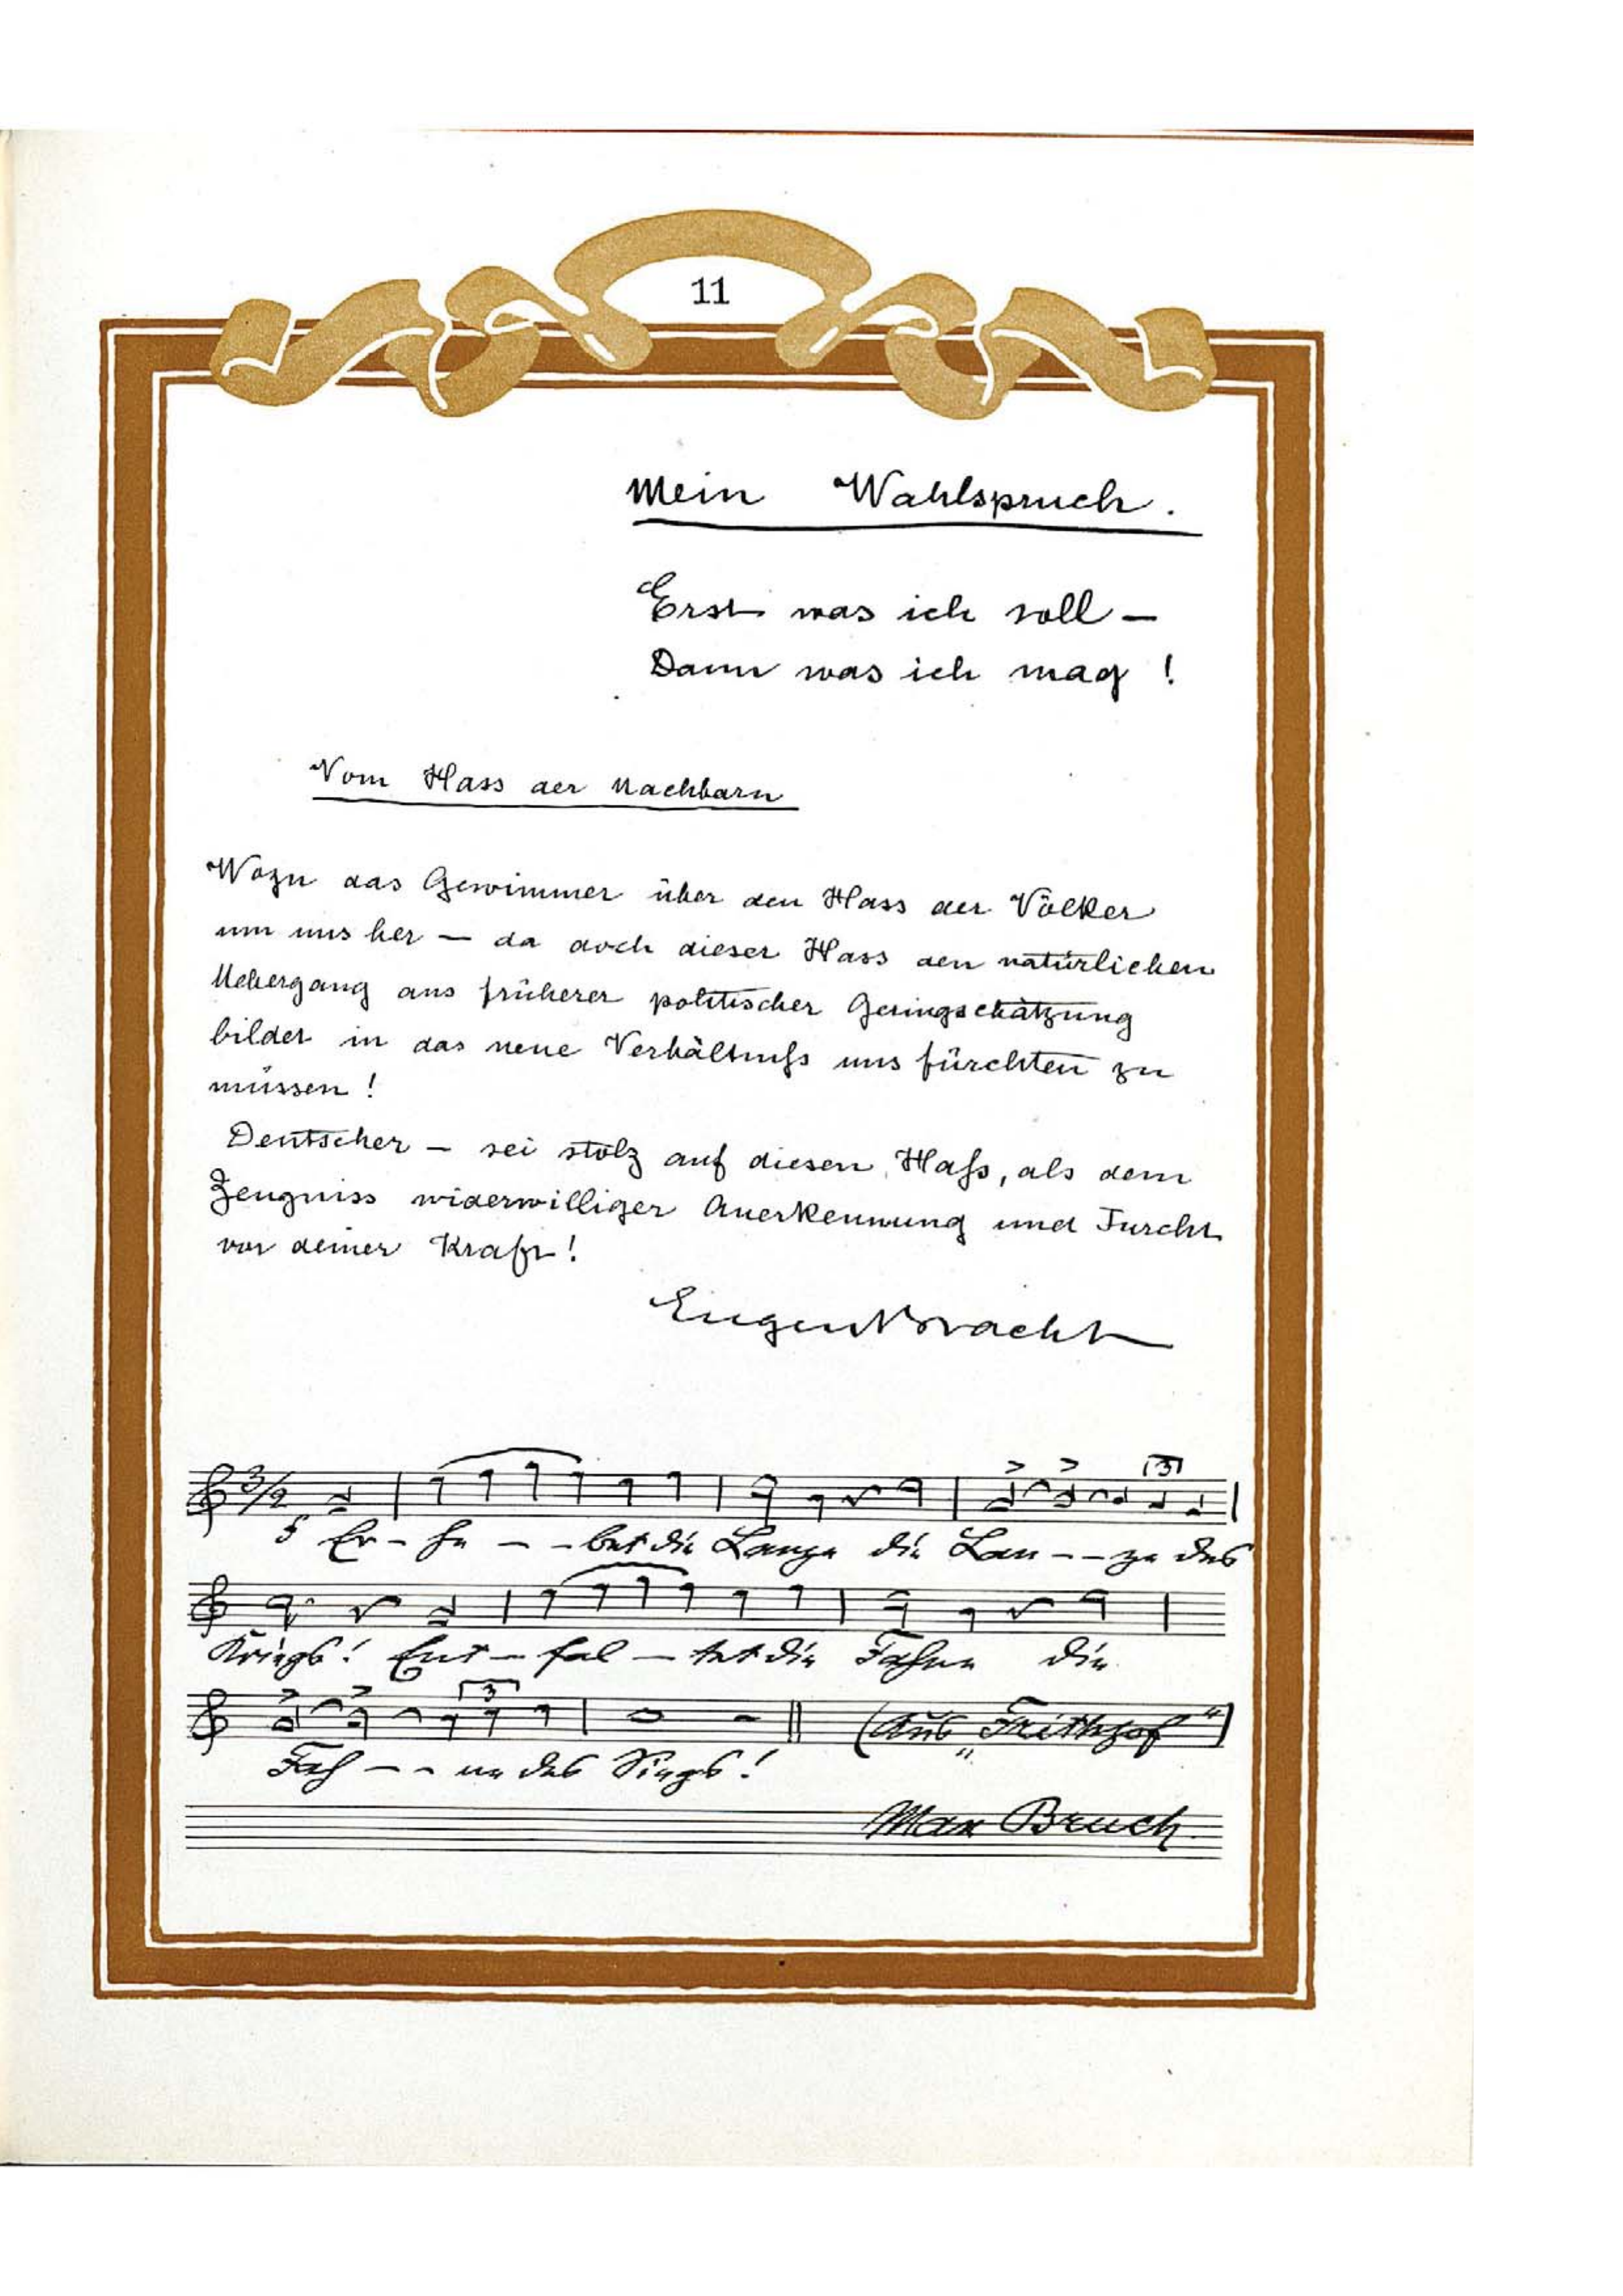 11
Mein Wahlspruch.
Erst was ich soll —
Dann was ich mag !
Vom Hass der Nachbarn
Wozu das Gewimmer über den Hass der Völker
um uns her — da doch dieser Hass den natürlichen
Uebergang aus früherer politischer Geringschätzung
bildet in das neue Verhältniß uns fürchten zu
müssen !
Deutscher — sei stolz auf diesen Haß, als dem
Zeugniss widerwilliger Anerkennung und Furcht
vor deiner Kraft !
Eugen Bracht
3/2
3
f Er - he - - bet die Lanze die Lan - - ze des
Kriegs! Ent - fal - tet die Fahne die
3
(Aus „Frithjof")
Fah - - ne des Siegs!
Max Bruch